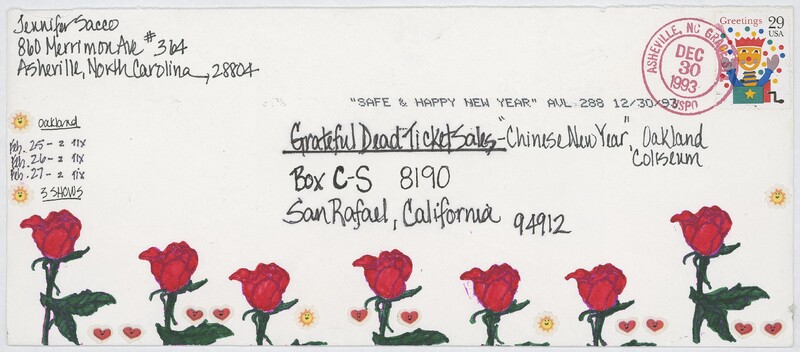 Jennifer Sacco
860 Merrimon Ave # 364
Asheville, North Carolina, 28804
Greetings 29
USA
ASHEVILLE, NC
DEC
30
1993
USPO
"SAFE & HAPPY NEW YEAR" AVL 288 12/30/93
Grateful Dead Ticket Sales - "Chinese New Year", Oakland
Coliseum
Box C-S 8190
San Rafael, California 94912
Oakland
Feb. 25 - 2 tix
Feb. 26 - 2 tix
Feb. 27 - 2 tix
3 SHOWS